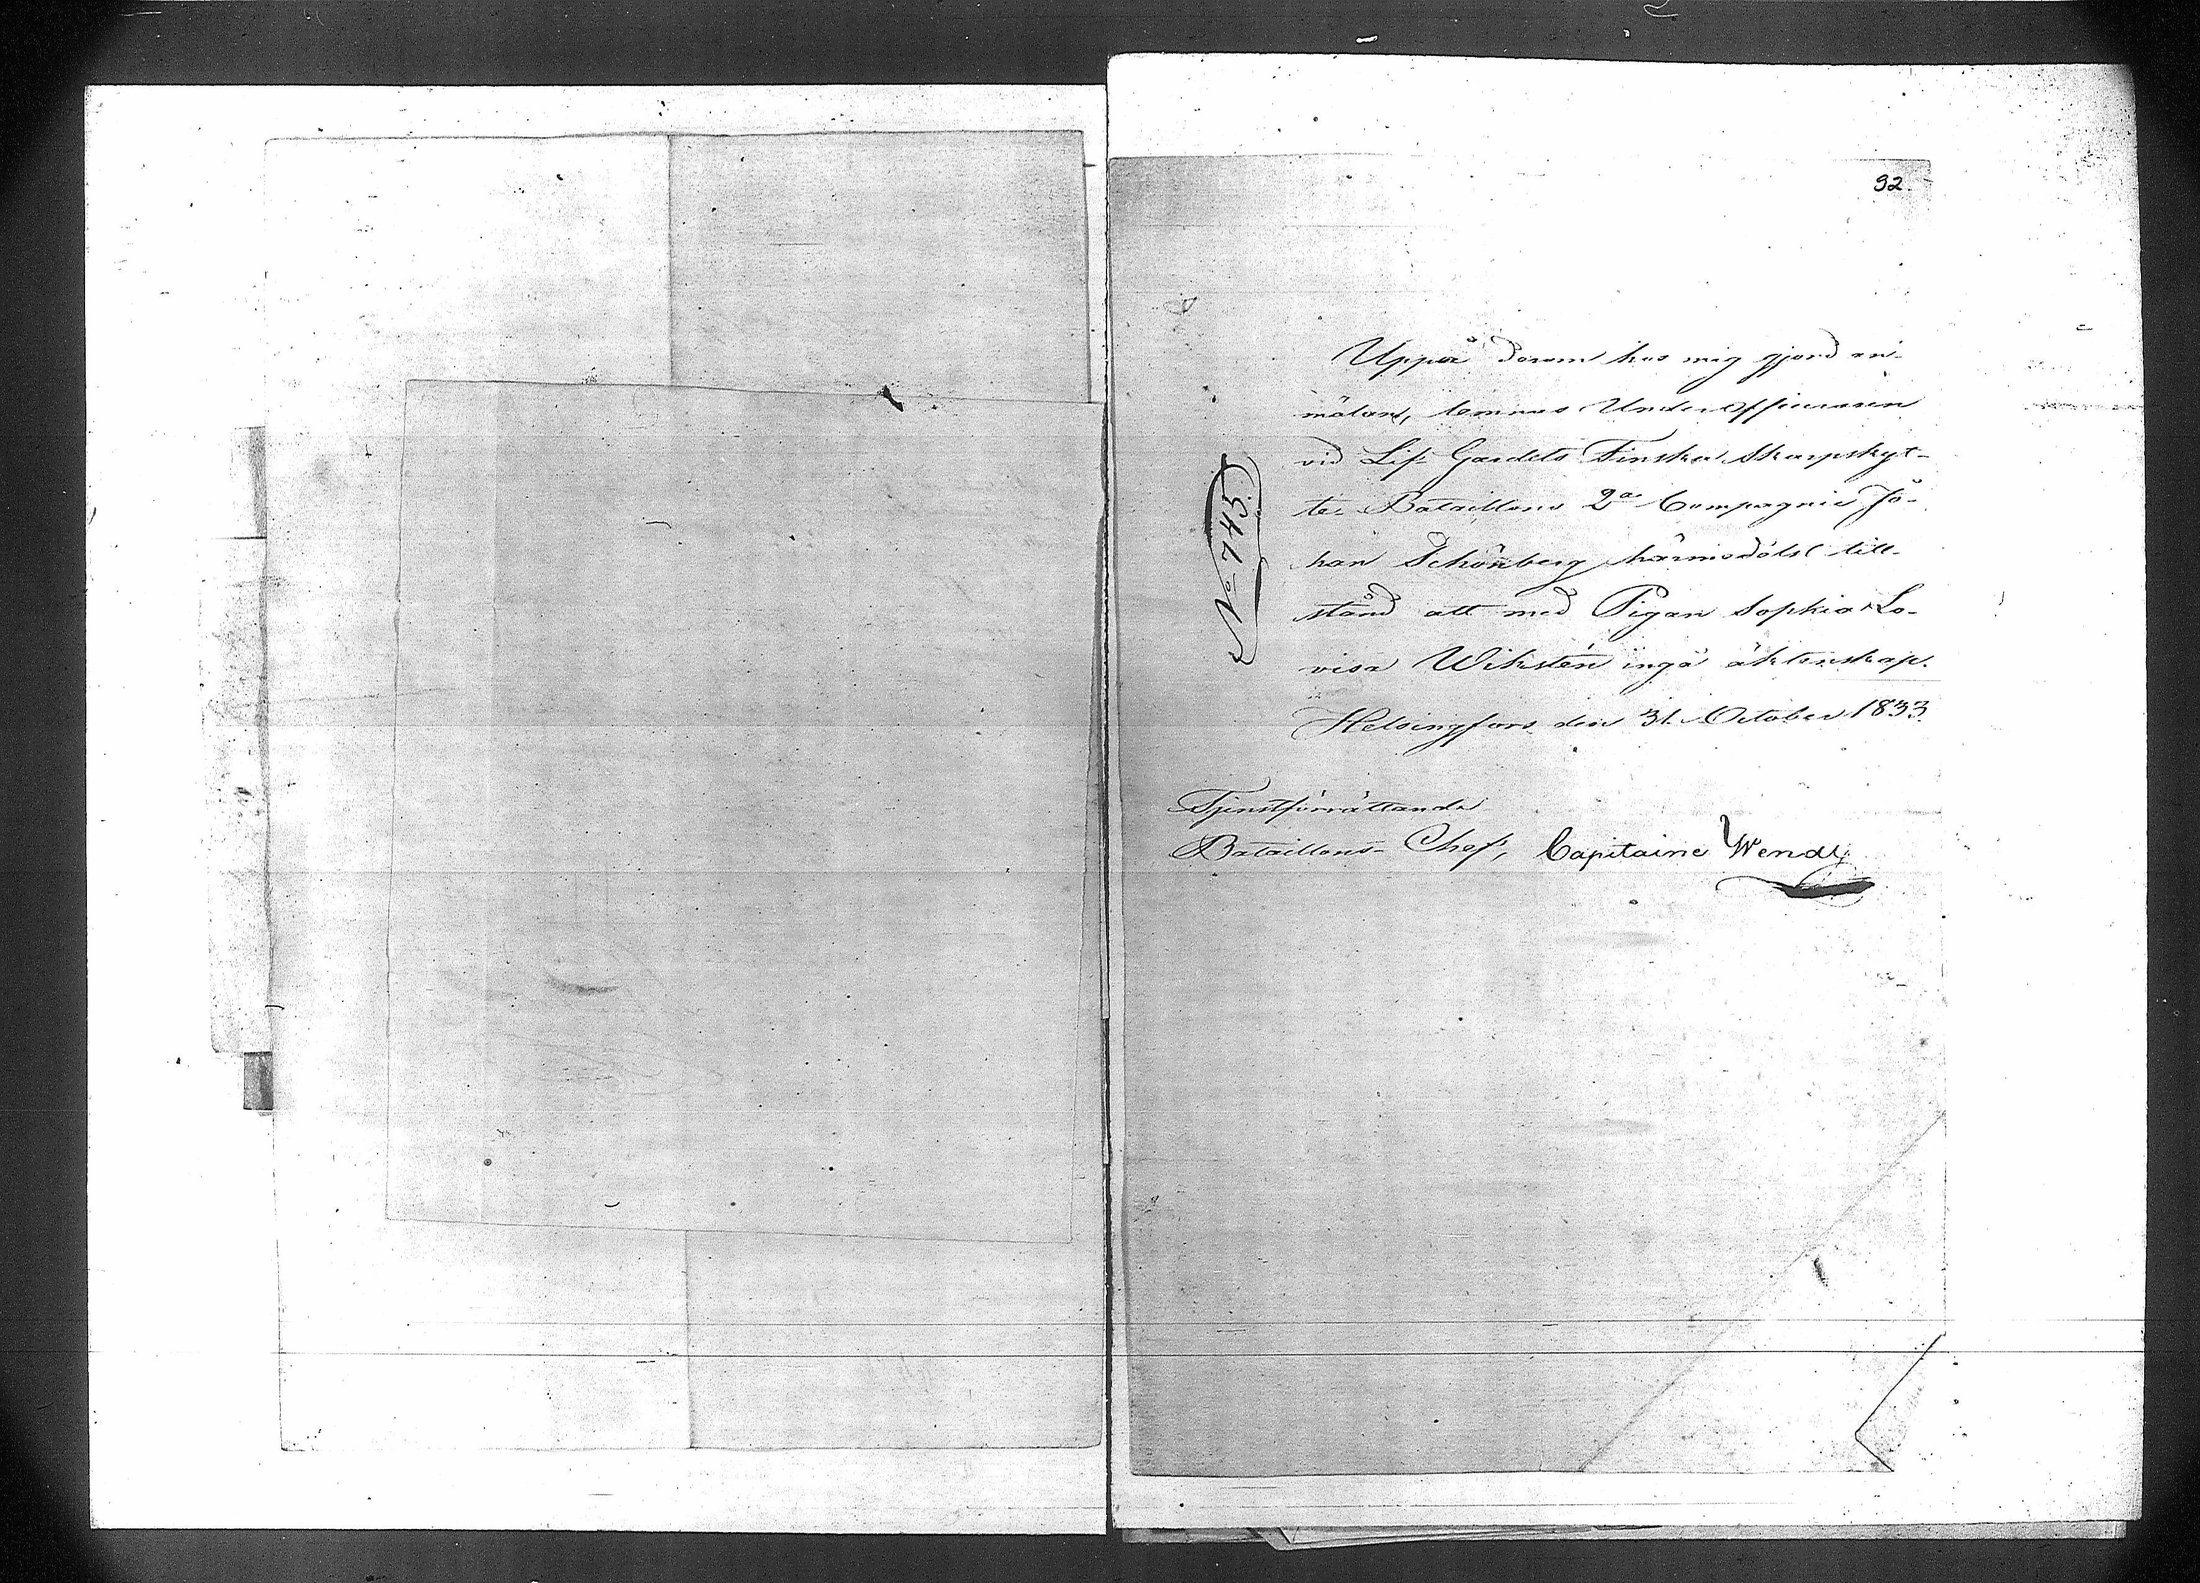 92.
Uppå derom hos mig gjord an-
mälan, lemnas Underofficeraren
vid Lif-Gardets Finska Skarpskyt-
te-Bataillons 2a Compagnie Jo-
han Schönberg härmedelst till-
stånd att med Pigan Sophia Lo-
visa Wikstén ingå äktenskap.
Helsingfors den 31 October 1833.
No 745.
Tjenstförrättande
Bataillons-Chef, Capitaine